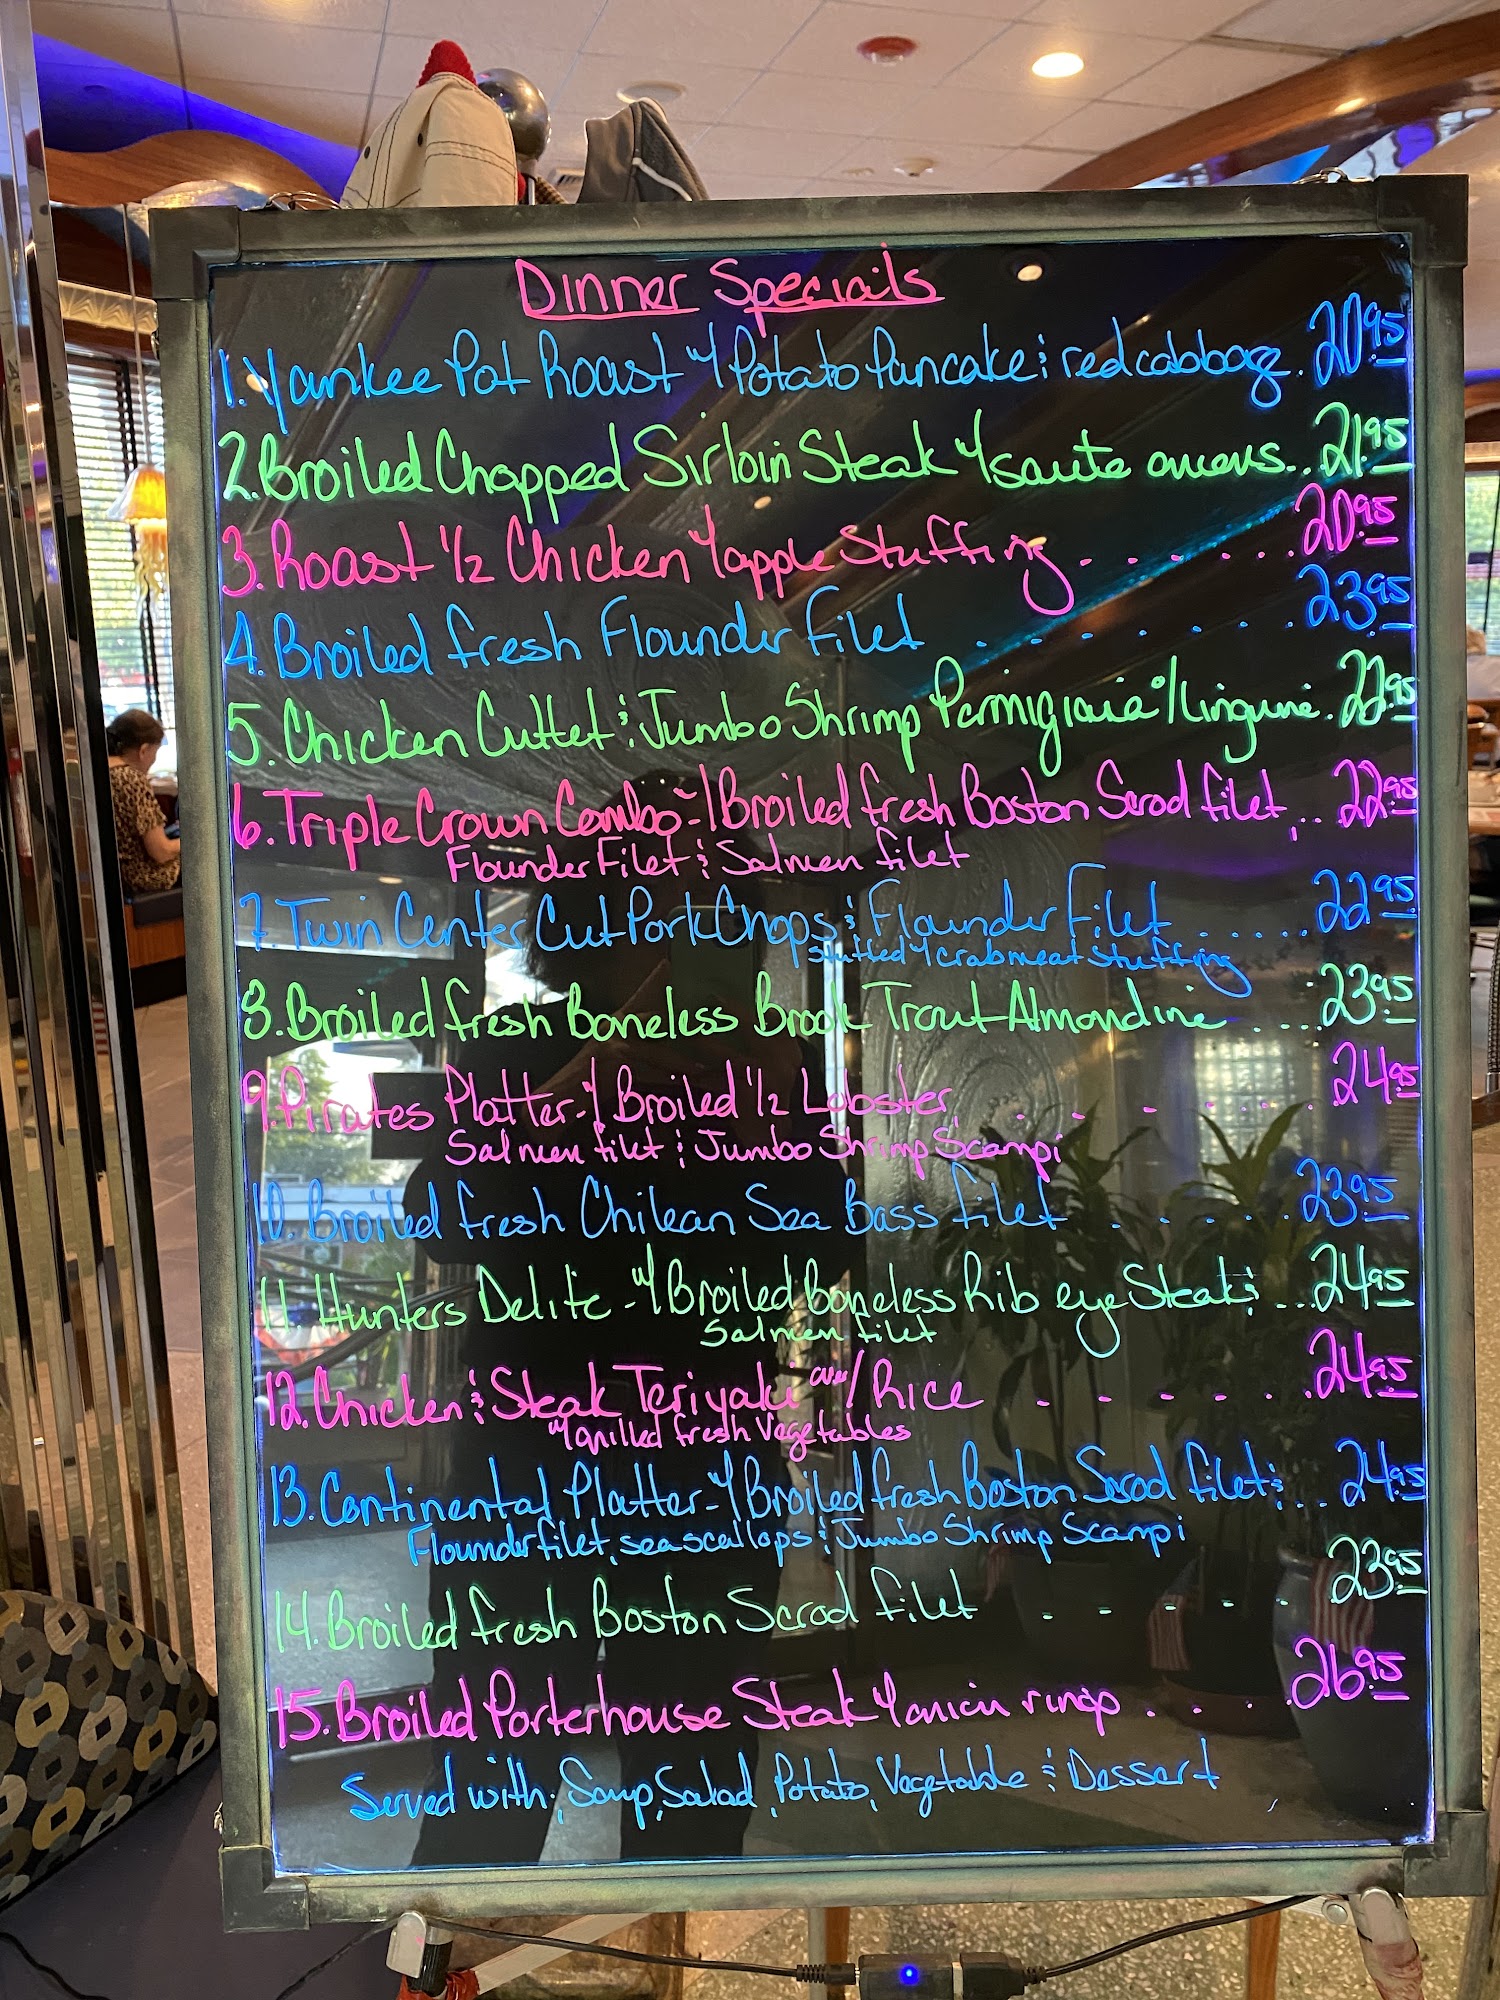 Dinner Specials
1. Yankee Pot Roast w/ Potato Pancake & red cabbage. 20.95
2. Broiled Chopped Sirloin Steak w/ saute onions... 21.95
3. Roast 1/2 Chicken w/ apple Stuffing . . . . . . . 20.95
4. Broiled fresh Flounder filet . . . . . . . . 23.95
5. Chicken Cutlet & Jumbo Shrimp Parmigiana o/ linguini. 22.95
6. Triple Crown Combo - w/ Broiled fresh Boston Scrod filet, .. 22.95
Flounder Filet & Salmon filet
7. Twin Center Cut Pork Chops & Flounder Filet ...... 22.95
stuffed w/ crabmeat stuffing
8. Broiled fresh Boneless Brook Trout Almondine .... 23.95
9. Pirates Platter - w/ Broiled 1/2 Lobster, . . . . . . 24.95
Salmon filet & Jumbo Shrimp Scampi
10. Broiled fresh Chilean Sea Bass filet . . . . . 23.95
11. Hunters Delite - w/ Broiled Boneless Rib eye Steak & ... 24.95
Salmon filet
12. Chicken & Steak Teriyaki over/ Rice . . . . . . 24.95
w/ grilled fresh vegetables
13. Continental Platter - w/ Broiled fresh Boston Scrod filet & .. 24.95
Flounder filet, sea scallops & Jumbo Shrimp Scampi
14. Broiled fresh Boston Scrod filet . - - - - 23.95
15. Broiled Porterhouse Steak w/ onion rings . . . . 26.95
Served with: Soup, Salad, Potato, Vegetable & Dessert